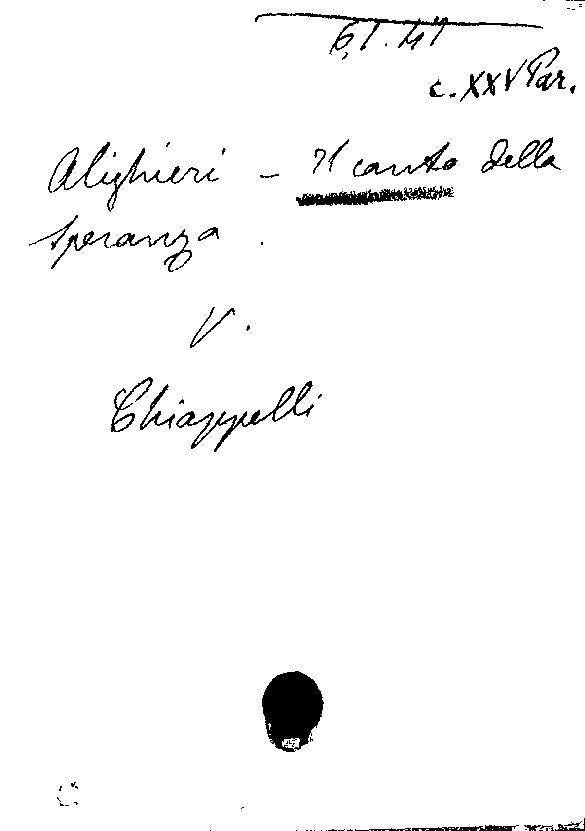 6.I.41
c. XXV Par.
Alighieri - Il canto della
speranza.
V.
Chiappelli